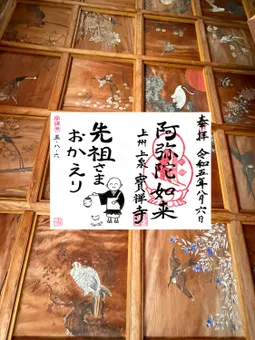 奉拝 令和五年八月六日
阿弥陀如来
上州上泉 寳禅寺
先祖さま
おかえり
五・八・六